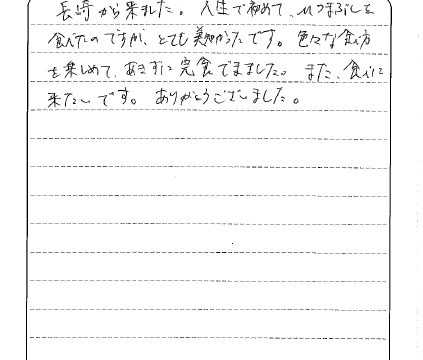 長崎から来ました。人生で初めて、ひつまぶしを
食べたのですが、とても美味かったです。色々な食べ方
を楽しめて、あきずに完食できました。また、食べに
来たいです。ありがとうございました。